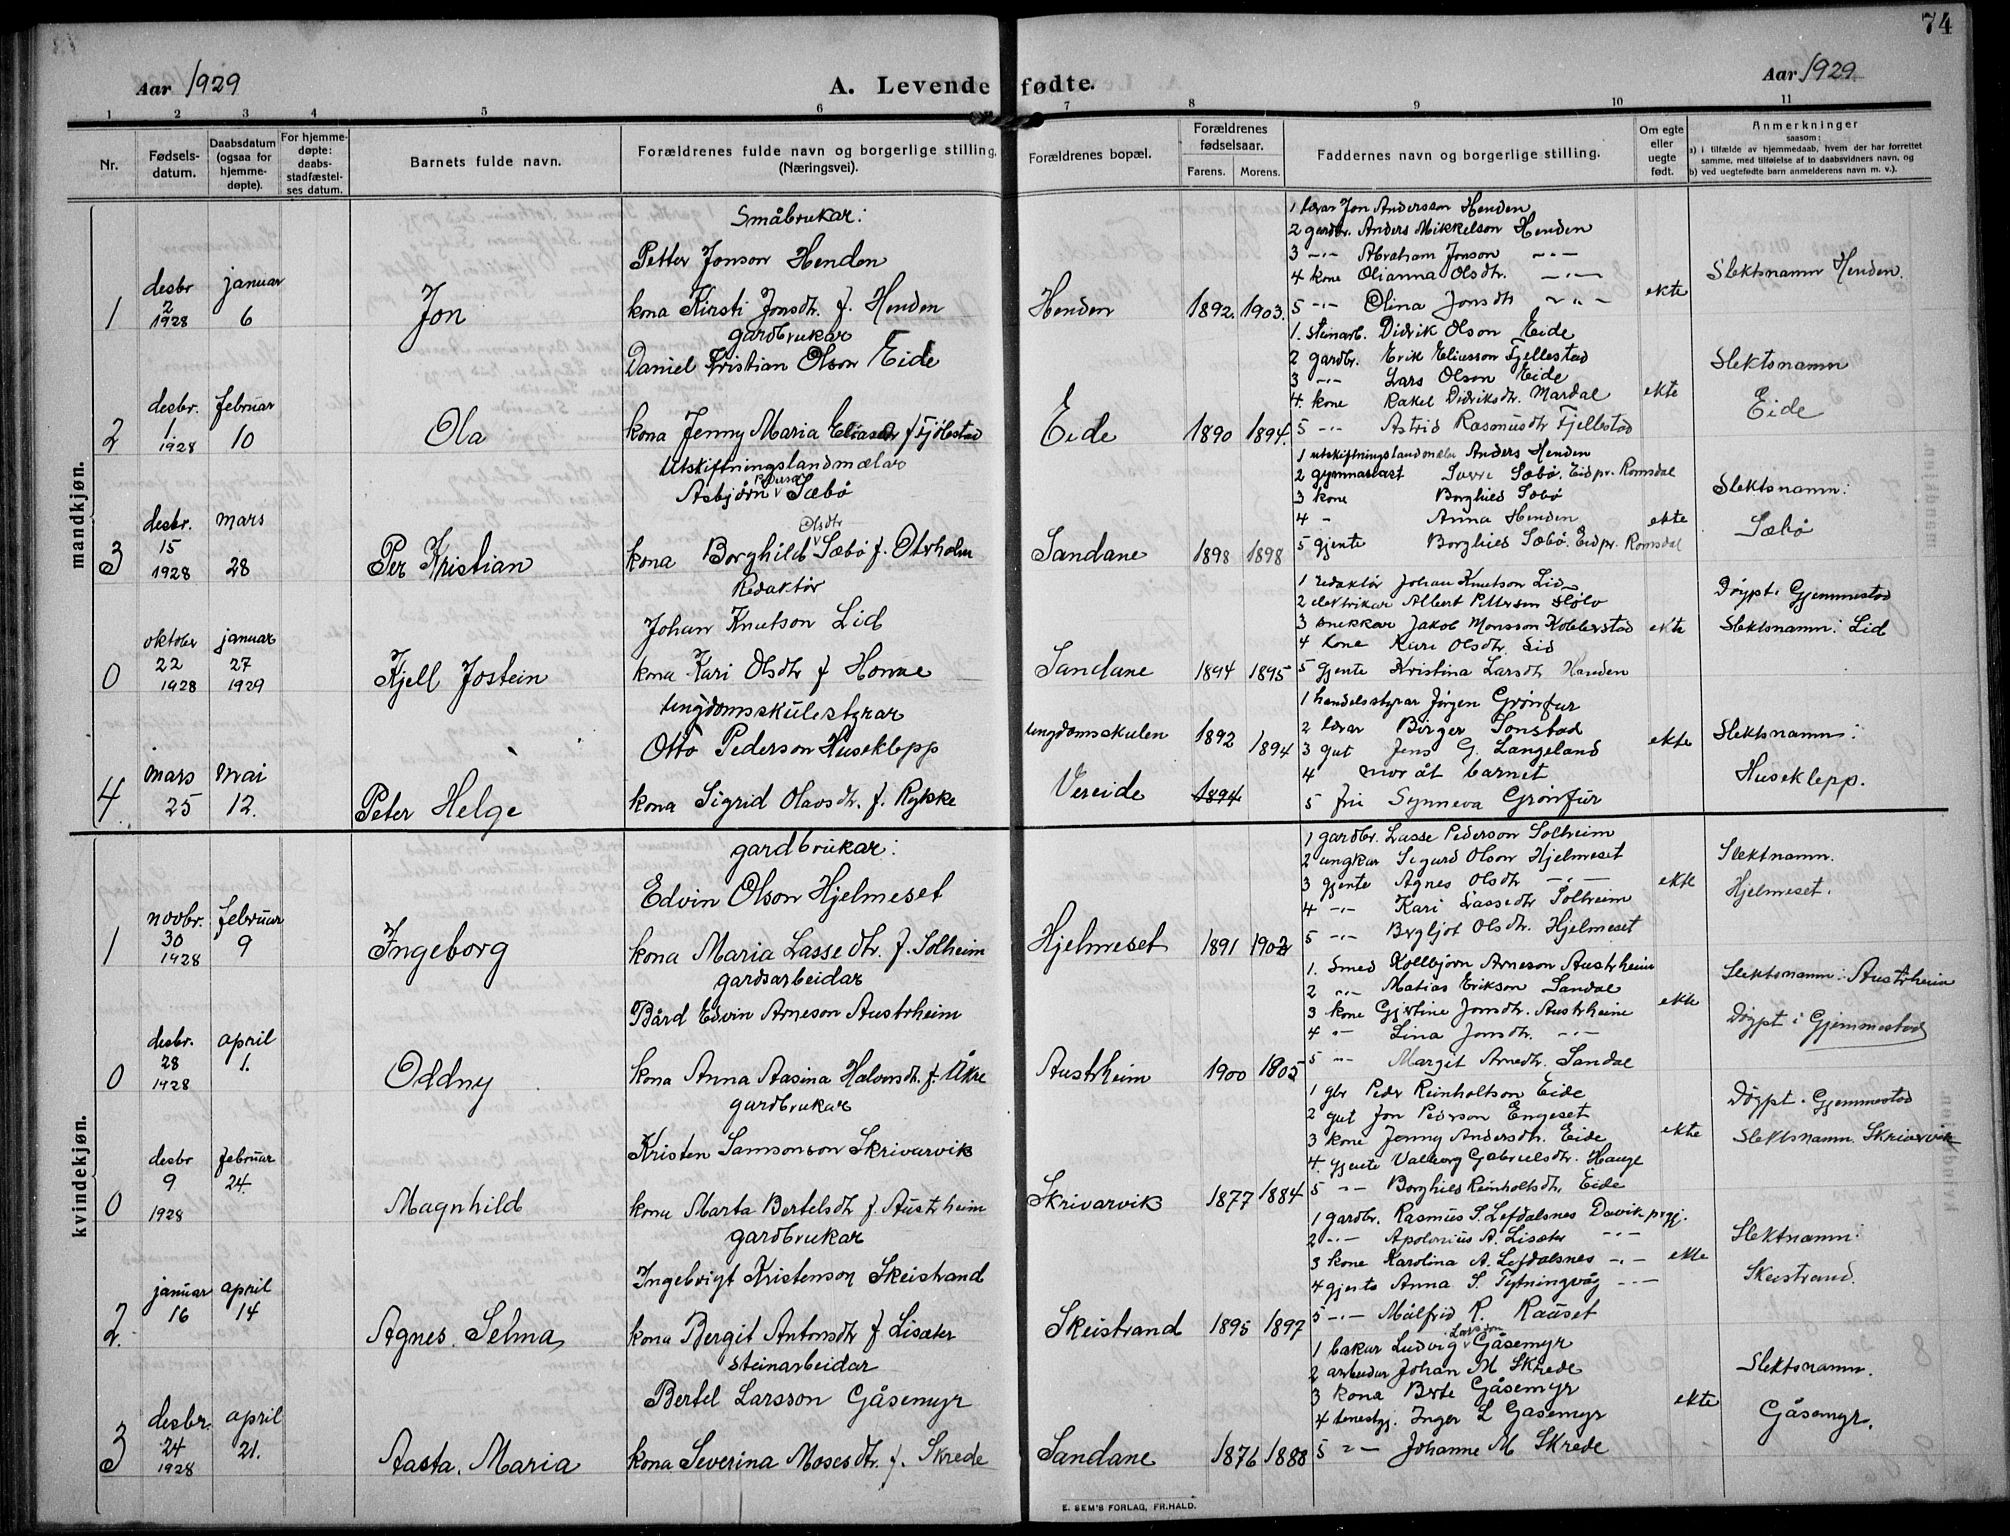 74
Aar 1929
A. Levende fødte.
Aar 1929
1 2 3 4 5 6 7 8 9 10 11
Nr.
Fødsels-
datum.
Daabsdatum
(ogsaa for
hjemme-
døpte).
For hjemme-
døpte:
daabs-
stadfæstel-
ses datum.
Barnets fulde navn.
Forældrenes fulde navn og borgerlige stilling.
(Næringsvei).
Forældrenes bopæl.
Forældrenes
fødselsaar.
Farens. Morens.
Faddernes navn og borgerlige stilling.
Om egte
eller
uegte
født.
Anmerkninger
saasom:
a) i tilfælde av hjemmedaab, hvem der har forrettet
samme, med tilføielse af to daabsvidners navn, og
b) ved uegtefødte barn anmelderens navn m. v.).
mandkjøn.
1
desbr
2
1928
januar
6
Jon
Småbrukar:
Petter Jonson Henden
kona Kirsti Jonsdtr. f. Henden
Henden
1892. 1903.
1 lærar Jon Andersson Henden
2 gardbr. Anders Mikkelson Henden
3 -"- Abraham Jonson -"-
4 kone Olianna Olsdtr. -"-
5 -"- Olina Jonsdtr -"-
ekte
Slektsnamn Henden.
2
desbr.
1
1928
februar
10
Ola
gardbrukar
Daniel Kristian Olson Eide
kona Jenny Maria Eliasdtr f Fjølestad
Eide
1890 1894.
1. steinarb. Didrik Olson Eide
2 gardbr. Erik Eliasson Fjellestad
3 -"- Lars Olson Eide
4. kone Rakel Didriksdtr. Mardal
5 -"- Astrid Rasmusdtr Fjellestad
ekte
Slektsnamn
Eide
3
desbr.
15
1928
mars
28
Per Kristian
Utskiftningslandmælar
Asbjørn Sæbø
kona Borghild Olsdtr Sæbø f. Otrholm
Sandane
1898 1898
1 utskiftningslandmælar Anders Henden
2 gymnasiast Sæbø. Eid pr. Romsdal
3 kone Borghild Sæbø
4 - Anna Henden
5 gjente Borghild Sæbø. Eid pr. Romsdal
ekte
Slektsnamn:
Sæbø
0
oktober
22
1928
januar
27
1929
Kjell Jostein
Redaktør
Johan Knutson Lid
kona Kari Olsdtr f Honne
Sandane
1894 1895
1 redaktør Johan Knutson Lid
2 elektrikar Albert Petterson
3 snekkar Jakob Monsson
4 kone Kari Olsdtr. Lid
5 gjente Kristina Larsdtr Henden
ekte
Døypt i Gjemmestad
Slektsnamn: Lid
4
mars
25
mai
12.
Peter Helge
Ungdomsskulestyrar
Otto Pederson Huseklepp
kona Sigrid Olavsdtr. f. Rykke
Ungdomsskulen
Vereide
1892 1894
1894
1 handelsstyrar Jørgen Grønfur
2 lærar Birger Tonstad
3 gut Jens G. Langeland
4 mor åt barnet
5 fru Synneva Grønfur
ekte
Slektsnamn:
Huseklepp.
kvindekjøn.
1
novbr.
30
1928
februar
9
Ingeborg
gardbrukar:
Edvin Olson Hjelmeset
kona Maria Lassedtr. f. Solheim
Hjelmeset
1891 1902
1 gardbr. Lasse Pederson Solheim
2 ungkar Sigurd Olson Hjelmeset
3 gjente Agnes Olsdtr -"-
4 -"- Kari Lassedtr Solheim
5 -"- Bergljot Olsdtr. Hjelmeset
ekte
Slektnamn.
Hjelmeset.
0
desbr.
28
1928
april
1.
Oddny
gardsarbeidar
Bård Edvin Arneson Austrheim
kona Anna Aasina Halvorsdtr. f. Åkre
Austrheim
1900 1805
1. Smed Kolbjørn Arneson Austrheim
2 -"- Matias Erikson Sandal
3 kone Gjertine Jonsdtr. Austrheim
4 -"- Lina Jonsdtr. -"-
5 -"- Margit Arnedtr. Sandal
ekte
Slektsnamn: Austrheim
Døypt i Gjemmestad
0
desbr
9
1928
februar
24.
Magnhild
gardbrukar
Kristen Samsonson Skrivarvik
kona Marta Bertelsdtr f. Austrheim
Skrivarvik
1877 1884
1 gbr Peder Reinholtson Eide
2 gut Jon Pederson Engeset
3 kone Jenny Andersdtr. Eide
4. gjente Valborg Gabrielsdtr. Hauge
5 -"- Borghild Reinholtsdtr. Eide
ekte
Døypt i Gjemmestad
Slektsnamn. Skrivarvik
2.
januar
16
april
14
Agnes. Selma
gardbrukar
Ingebrigt Kristenson Skeistrand
kona Bergit Antonsdtr f Lisæter
Skeistrand
1895 1897
1 gardbr. Rasmus S. Lefdalsnes Davik prgj.
2 -"- Apolonius A. Lisæter -"-
3 kone Karolina A. Lefdalsnes -"-
4 gjente Anna S. Tytningvåg -"-
5 -"- Målfrid R. Raaset
ekte
Slektnamn:
Skeistrand.
3
desbr.
24
1928
april
21.
Aasta. Maria
steinarbeidar
Bertel Larsson Gåsemyr
kona Severina Mosesdtr. f. Skrede
Sandane
1876 1888
1 bakar Ludvig Larsson Gåsemyr
2 arbeidar Johan M Skrede
3 kona Berte Gåsemyr
4 tenestgj. Inger L Gåsemyr
5 -"- Johanne M Skrede
ekte
Slektsnamn.
Gåsemyr.
E. SEM'S FORLAG, FR.HALD.